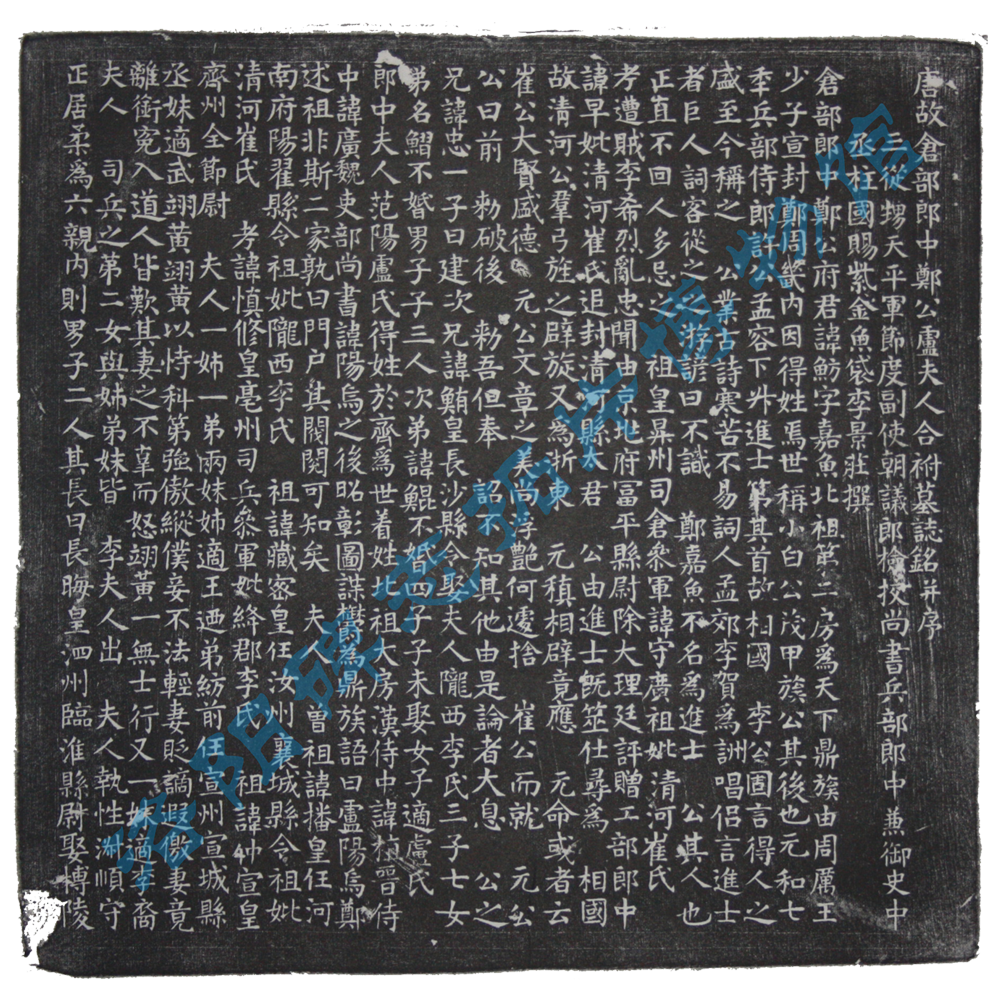 唐故倉部郎中鄭公盧夫人合祔墓誌銘并序
三從甥天平軍節度副使朝議郎檢校尚書兵部郎中兼御史中
丞柱國賜紫金魚袋李景莊撰
倉部郎中鄭公府君諱魴字嘉魚北祖第二房為天下鼎族由周厲王
少子宣封鄭周畿內因得姓焉世稱小白公茂甲族公其後也元和七
季兵部侍郎許公孟容下升進士第其首故相國 李公固言得人之
盛至今稱之 公業古詩寒苦不易詞人孟郊李賀為詶唱侶言進士
者巨人詞客從之之游諺曰不識 鄭嘉魚不名為進士 公其人也
正直不回人多忌之 祖皇昇州司倉參軍諱守廣祖妣清河崔氏
考遭賊李希烈亂忠聞由京兆府富平縣尉除大理廷評贈工部郎中
諱早妣清河崔氏追封清河縣太君 公由進士既筮仕尋為 相國
故清河公羣弓旌之辟旋又為浙東 元稹相辟竟應 元命或者云
崔公大賢盛德 元公文章之美尚浮艷何遽捨 崔公而就 元公
公曰前 勑破後 勑吾但奉 詔不知其他由是論者大息 公之
兄諱忠一子曰建次兄諱鮪皇長沙縣令娶夫人隴西李氏三子七女
弟名鰼不婚男子子三人次弟諱鯤不婚四子子未娶女子適盧氏
郎中夫人范陽盧氏得姓於齊為世着姓北祖大房漢侍中諱植晉侍
中諱廣魏吏部尚書諱陽烏之後昭彰圖諜欝為鼎族語曰盧陽烏鄭
述祖非斯二家孰曰門戶其閥閱可知矣 夫人曽祖諱播皇任河
南府陽翟縣令祖妣隴西李氏 祖諱藏密皇任汝州襄城縣令祖妣
清河崔氏 考諱慎修皇亳州司兵參軍妣絳郡李氏 祖諱仲宣皇
齊州全節尉 夫人一姉一弟兩妹姉適王迺弟紡前任宣州宣城縣
丞妹適武翊黃翊黃以恃科第強傲縱僕妾不法輕妻貶謫遐儌妻竟
離銜冤入道人皆歎其妻之不辜而怒翊黃一無士行又一妹適李裔
夫人 司兵之第二女與姉弟妹皆 李夫人出 夫人執性淋順守
正居柔為六親內則男子二人其長曰長晦皇泗州臨淮縣尉娶博陵
洛阳碑志拓片博物馆